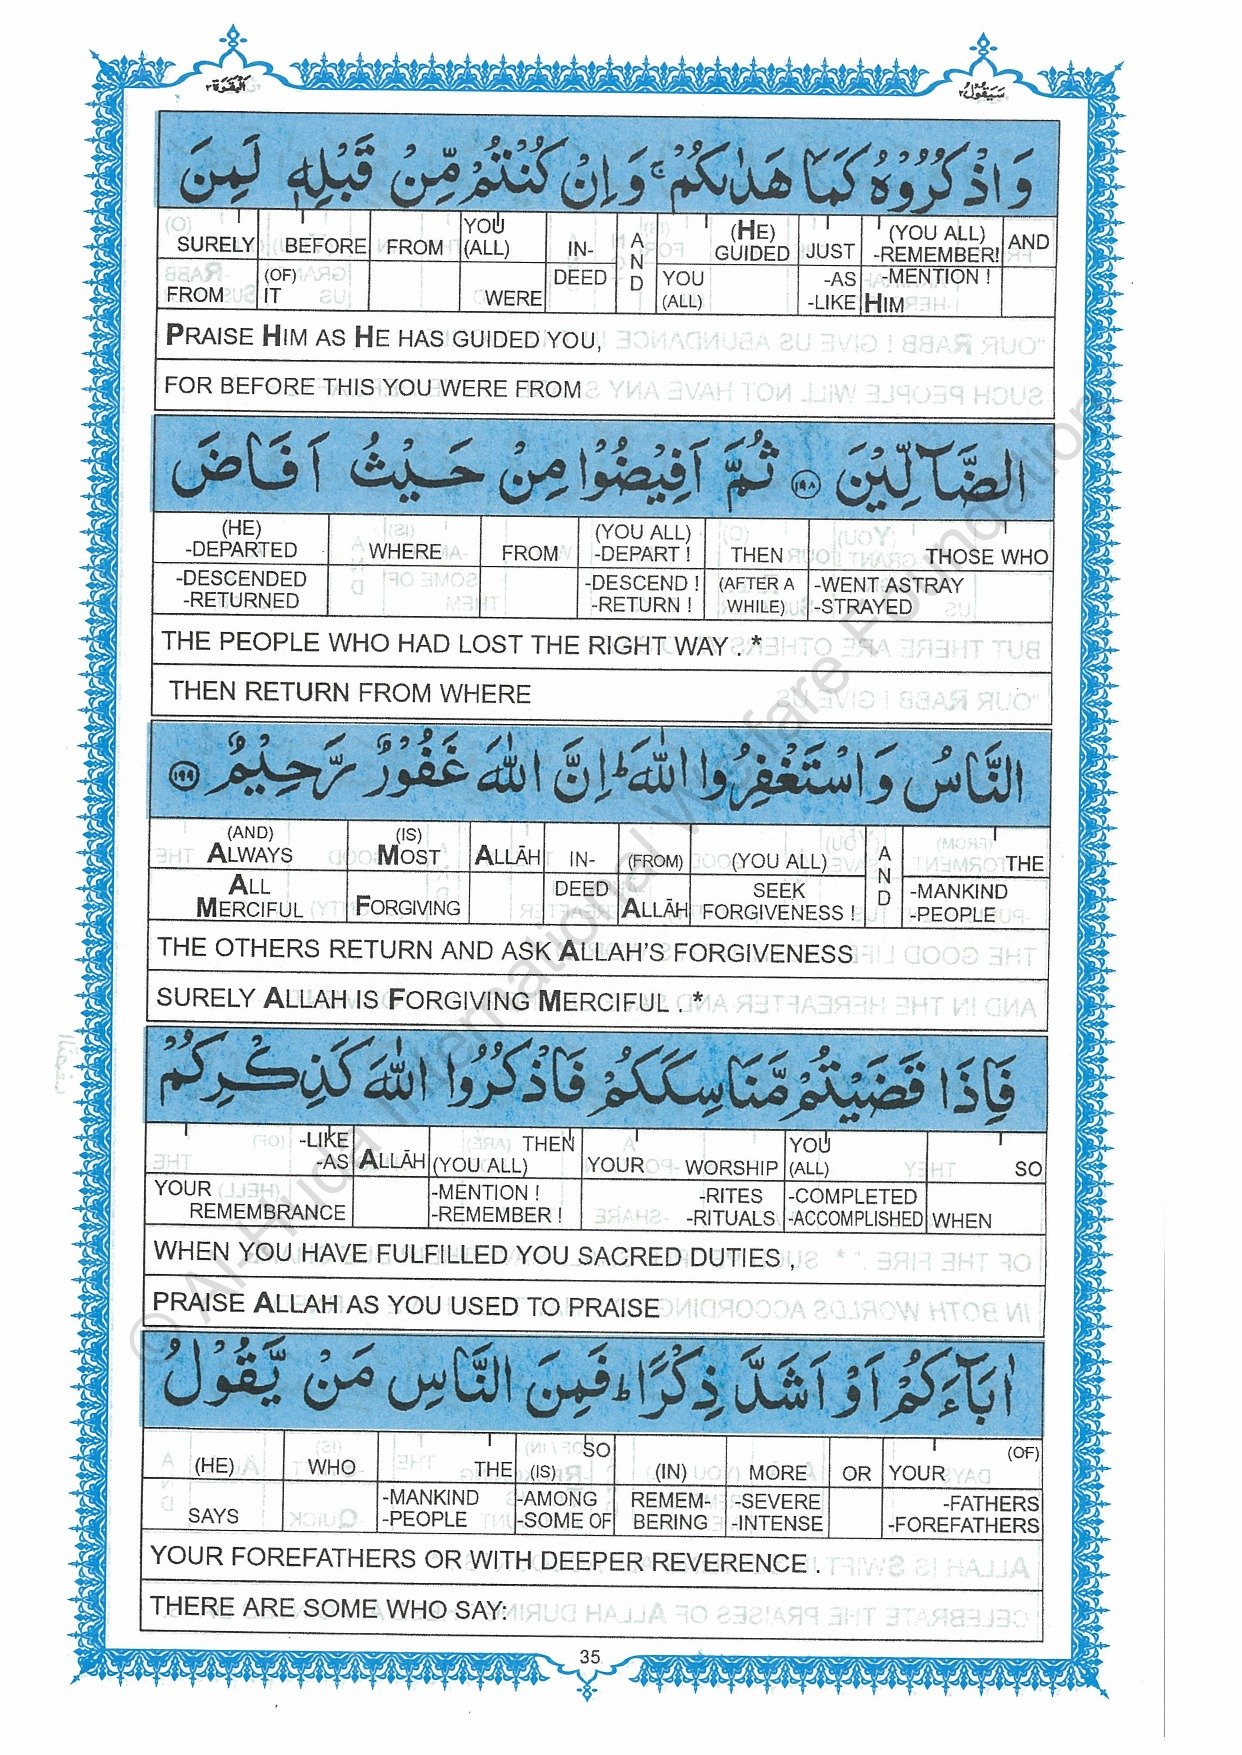 البقرة ٢
سَيَقُولُ ٢
وَاذْكُرُوْهُ كَمَا هَدٰىكُمْ ۚ وَاِنْ كُنْتُمْ مِّنْ قَبْلِهٖ لَمِنَ
SURELY BEFORE FROM YOU (ALL) IN- AND (HE) GUIDED JUST (YOU ALL) -REMEMBER! AND
FROM (OF) IT WERE DEED YOU (ALL) -AS -LIKE -MENTION ! HIM
PRAISE HIM AS HE HAS GUIDED YOU,
FOR BEFORE THIS YOU WERE FROM
الضَّآلِّيْنَ ١٩٨ ثُمَّ اَفِيْضُوْا مِنْ حَيْثُ اَفَاضَ
(HE) -DEPARTED WHERE FROM (YOU ALL) -DEPART ! THEN THOSE WHO
-DESCENDED -RETURNED -DESCEND ! -RETURN ! (AFTER A WHILE) -WENT ASTRAY -STRAYED
THE PEOPLE WHO HAD LOST THE RIGHT WAY . *
THEN RETURN FROM WHERE
النَّاسُ وَاسْتَغْفِرُوا اللّٰهَ ؕ اِنَّ اللّٰهَ غَفُوْرٌ رَّحِيْمٌ ١٩٩
(AND) ALWAYS (IS) MOST ALLĀH IN- (FROM) (YOU ALL) AND THE
ALL MERCIFUL FORGIVING DEED ALLĀH SEEK FORGIVENESS ! -MANKIND -PEOPLE
THE OTHERS RETURN AND ASK ALLAH'S FORGIVENESS
SURELY ALLAH IS FORGIVING MERCIFUL . *
فَاِذَا قَضَيْتُمْ مَّنَاسِكَكُمْ فَاذْكُرُوا اللّٰهَ كَذِكْرِكُمْ
-LIKE -AS ALLĀH THEN (YOU ALL) YOUR WORSHIP YOU (ALL) SO
YOUR REMEMBRANCE -MENTION ! -REMEMBER ! -RITES -RITUALS -COMPLETED -ACCOMPLISHED WHEN
WHEN YOU HAVE FULFILLED YOU SACRED DUTIES ,
PRAISE ALLAH AS YOU USED TO PRAISE
اٰبَآءَكُمْ اَوْ اَشَدَّ ذِكْرًا ؕ فَمِنَ النَّاسِ مَنْ يَّقُوْلُ
(HE) WHO THE SO (IS) (IN) MORE OR YOUR (OF)
SAYS -MANKIND -PEOPLE -AMONG -SOME OF REMEM- BERING -SEVERE -INTENSE -FATHERS -FOREFATHERS
YOUR FOREFATHERS OR WITH DEEPER REVERENCE .
THERE ARE SOME WHO SAY:
35
© Al-Huda International Welfare Foundation